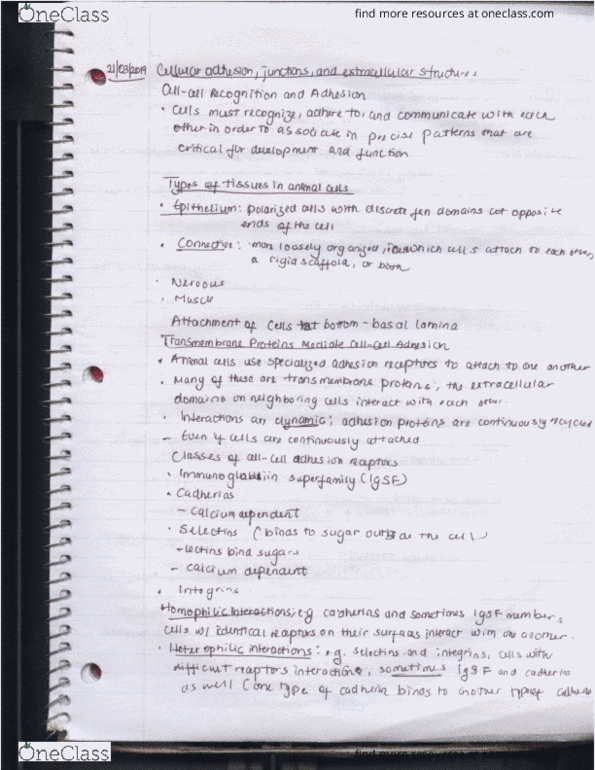 OneClass
find more resources at oneclass.com
21/03/2019 Cellular adhesion, junctions, and extracellular structures
Cell-cell Recognition and Adhesion
• Cells must recognize, adhere to, and communicate with each
other in order to associate in precise patterns that are
critical for development and function
Types of tissues in animal cells
• Epithelium: polarized cells with discrete domains at opposite
ends of the cell
• Connective: more loosely organized, in which cells attach to each other,
a rigid scaffold, or both
• Nervous
• Muscle
Attachment of cells at bottom - basal lamina
Transmembrane Proteins Mediate Cell-Cell Adhesion
• Animal cells use specialized adhesion receptors to attach to one another
• Many of these are transmembrane proteins, the extracellular
domains on neighboring cells interact with each other.
• Interactions are dynamic; adhesion proteins are continuously recycled
- Even if cells are continuously attached
Classes of cell-cell adhesion receptors
• Immunoglobulin superfamily (IgSF)
• Cadherins
- calcium dependent
• Selectins (binds to sugar outside the cell)
- lectins bind sugars
- calcium dependent
• Integrins
Homophilic Interactions, e.g cadherins and sometimes IgSF members
cells w/ identical receptors on their surfaces interact with one another.
• Heterophilic interactions: e.g. selectins and integrins, cells with
different receptors interactions, sometimes IgSF and cadherins
as well (one type of cadherin binds to another type of cadherin
OneClass
find more resources at oneclass.com